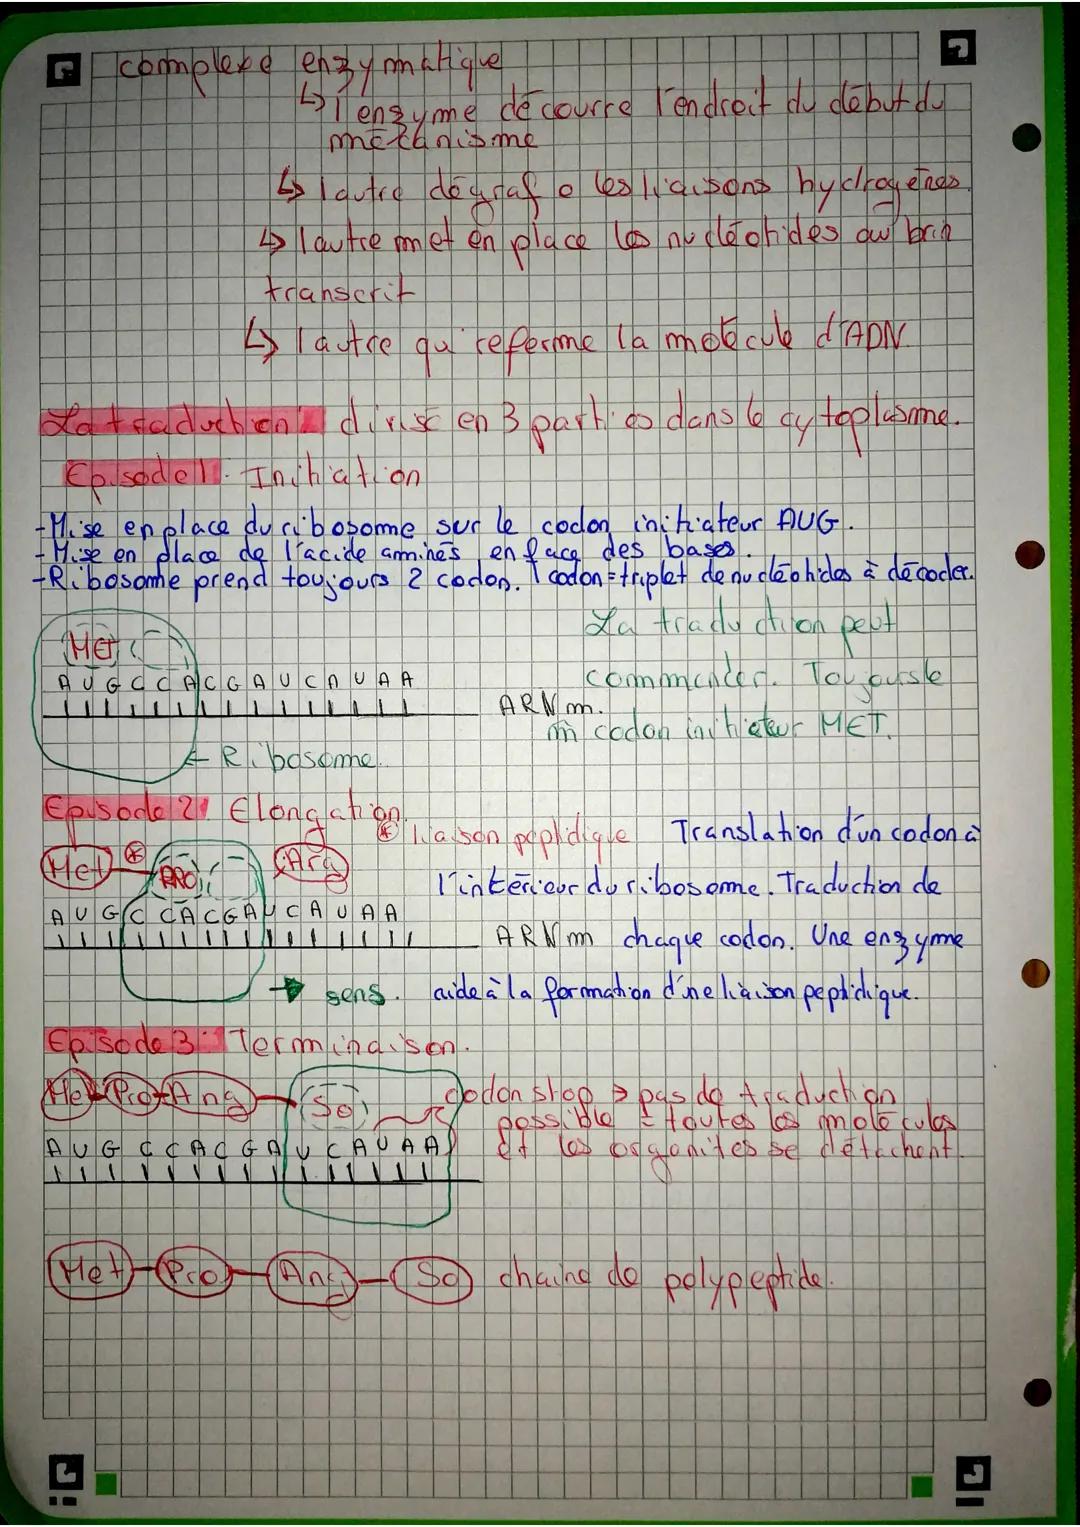 complexe enzymatique
↳ l'enzyme découvre l'endroit du début du
méchanisme
↳ l'autre dégrafe les liaisons hydrogènes.
↳ l'autre met en place les nucléotides au brin
transcrit
↳ l'autre qui referme la molécule d'ADN
La traduction: divisé en 3 parties dans le cytoplasme.
Episode 1: Initiation
- Mise en place du ribosome sur le codon initiateur AUG.
- Mise en place de l'acide aminés en face des bases.
- Ribosome prend toujours 2 codon. 1 codon = triplet de nucléotides à décoder.
MET
A U G C C A C G A U C A U A A
ARN m.
← Ribosome.
La traduction peut
commencer. Toujours le
m̂ codon initiateur MET.
Episode 2: Elongation.
* liaison peptidique
Met * PRO Arg
A U G C C A C G A U C A U A A
ARN m
→ sens.
Translation d'un codon à
l'intérieur du ribosome. Traduction de
chaque codon. Une enzyme
aide à la formation d'une liaison peptidique.
Episode 3: Terminaison.
Met Pro Ang So
A U G C C A C G A U C A U A A
codon stop → pas de traduction
possible = toutes les molécules
et les organites se détachent.
Met Pro Ang So chaine de polypeptide.